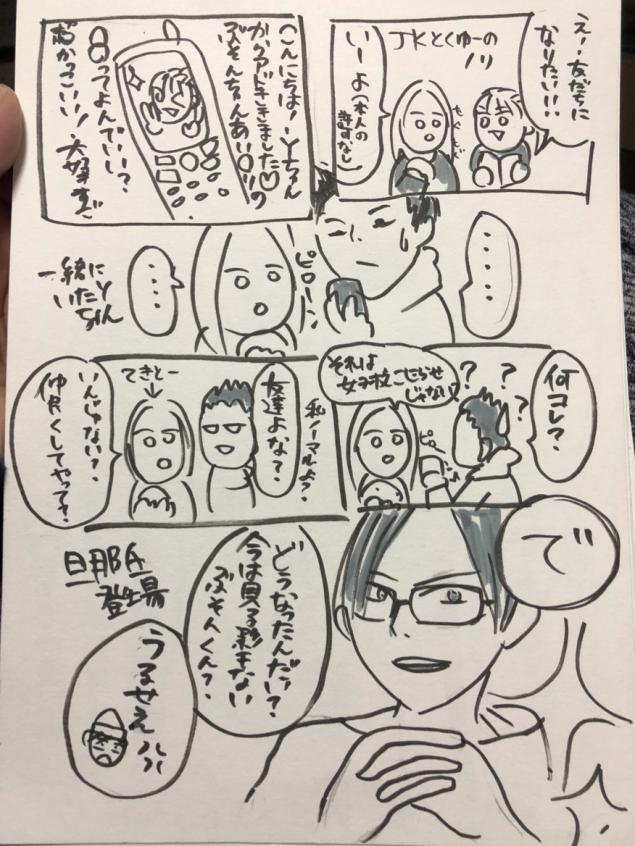 えー！友だちに
なりたい！！
JKとくゆーの
ノリ
もぐもぐ
いーよ(本人の
許可なし)
こんにちは！Yちゃん
からアドききました♡
ぶそんちゃんあい〇りの
〇ってよんでいい？
超かっこいい！大好き♡
・・・・
ピローン
・・・
一緒に
いたYちゃん
何コレ？
？？？
ピロ
それは
女子校こじらせ
じゃない
私ノーマルよ？
友達よな？
てきとー
いんじゃない？
仲良くしてやって？
で
どうなったんだい？
今は見る影もない
ぶそんくん？
旦那氏
登場
うるせえ